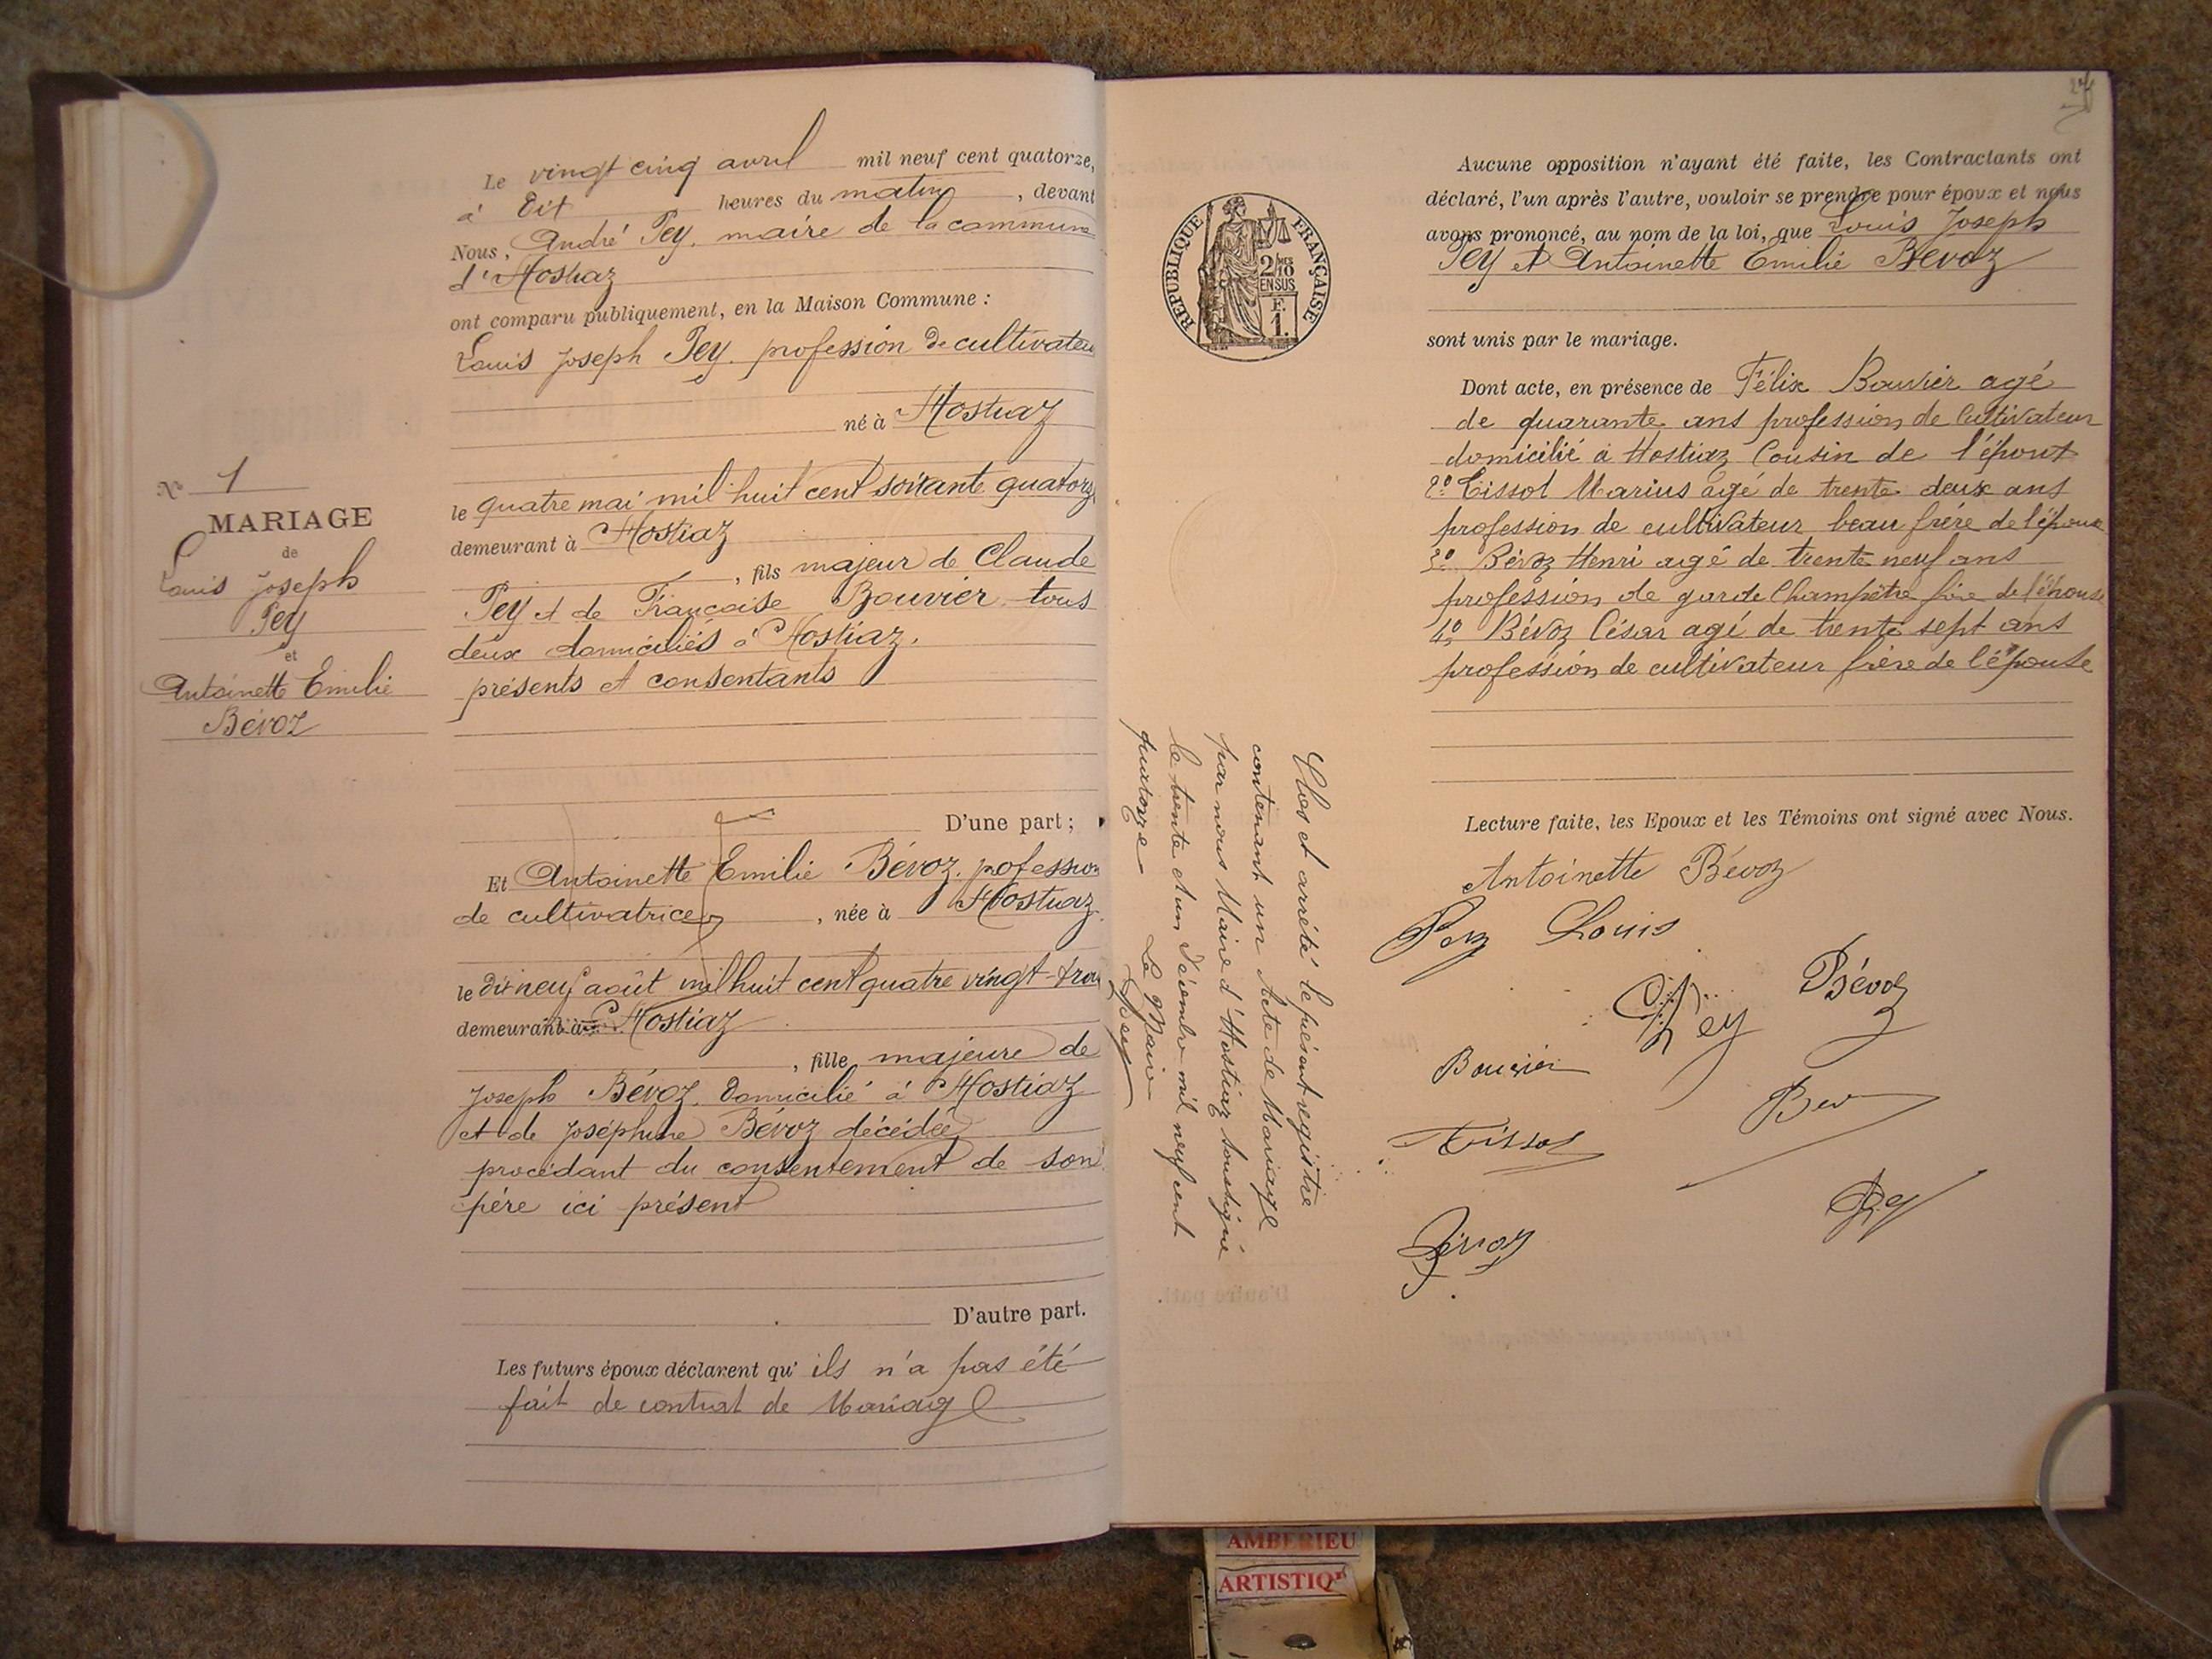 Le vingt cinq avril mil neuf cent quatorze,
à Dix heures du matin, devant
Nous, André Pey, maire de la commune
d'Hostiaz
ont comparu publiquement, en la Maison Commune :
Louis Joseph Pey, profession de cultivateur
né à Hostiaz
le quatre mai mil huit cent soixante quatorze
demeurant à Hostiaz
, fils majeur de Claude
Pey et de Françoise Bouvier tous
deux domiciliés à Hostiaz,
présents et consentants
N° 1
MARIAGE
de
Louis Joseph
Pey
et
Antoinette Emilie
Bévoz
D'une part ;
Et Antoinette Emilie Bévoz, pofession
de cultivatrice, née à Hostiaz
le dix neuf août mil huit cent quatre vingt-trois
demeurant à Hostiaz
, fille majeure de
Joseph Bévoz, domicilié à Hostiaz
et de Joséphine Bévoz décédée
procédant du consentement de son
père ici présent
D'autre part.
Les futurs époux déclarent qu'ils n'a pas été
fait de contrat de Mariage
REPUBLIQUE FRANÇAISE
2/10
EN SUS
F.
1.
Clos et arrêté le présent registre
contenant un Acte de Mariage
par nous Maire d'Hostiaz soussigné
le trente et un Décembre mil neuf cent
quatorze Le Maire
Pey
Aucune opposition n'ayant été faite, les Contractants ont
déclaré, l'un après l'autre, vouloir se prendre pour époux et nous
avons prononcé, au nom de la loi, que Louis Joseph
Pey et Antoinette Emilie Bévoz
sont unis par le mariage.
Dont acte, en présence de Félix Bouvier agé
de quarante ans profession de Cultivateur
domicilié à Hostiaz Cousin de l'époux
2° Tissot Marius agé de trente deux ans
profession de cultivateur beau frère de l'époux
3° Bévoz Henri agé de trente neuf ans
profession de garde Champêtre frère de l'épouse
4° Bévoz César agé de trente sept ans
profession de cultivateur frère de l'épouse
Lecture faite, les Epoux et les Témoins ont signé avec Nous.
Antoinette Bévoz
Pey Louis
Bévoz
Pey
Bouvier
Bev
Tissot
Bévoz
AMBERIEU
ARTISTIQ